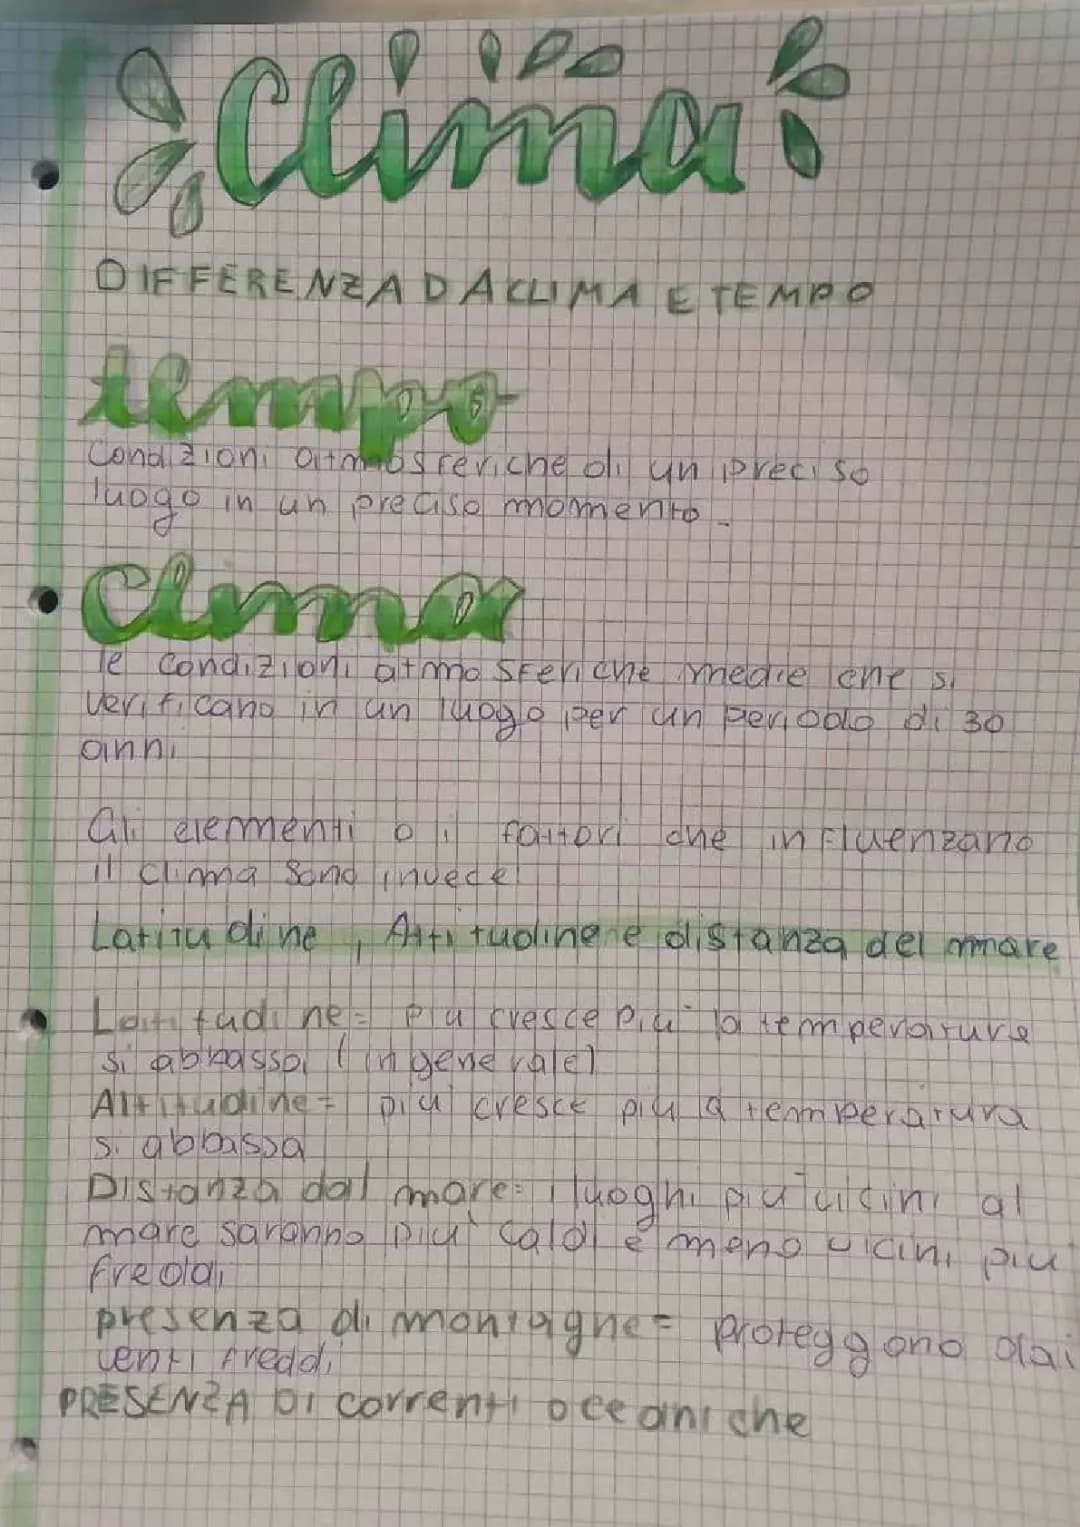 Clima
DIFFERENZA DA CLIMA E TEMPO
tempo
Condizioni atmosferiche di un preciso
luogo in un preciso momento.
clima
le condizioni atmosferiche medie che si
verificano in un luogo per un periodo di 30
anni
Gli elementi o i fattori che influenzano
il clima sono invece
Latitudine, Altitudine e distanza del mare
Latitudine= più cresce più la temperature
si abbassa (in generale)
Altitudine= più cresce più la temperatura
si abbassa
Distanza dal mare= i luoghi più vicini al
mare saranno più caldi e meno vicini più
freddi
presenza di montagne= proteggono dai
venti freddi
PRESENZA DI correnti oceaniche